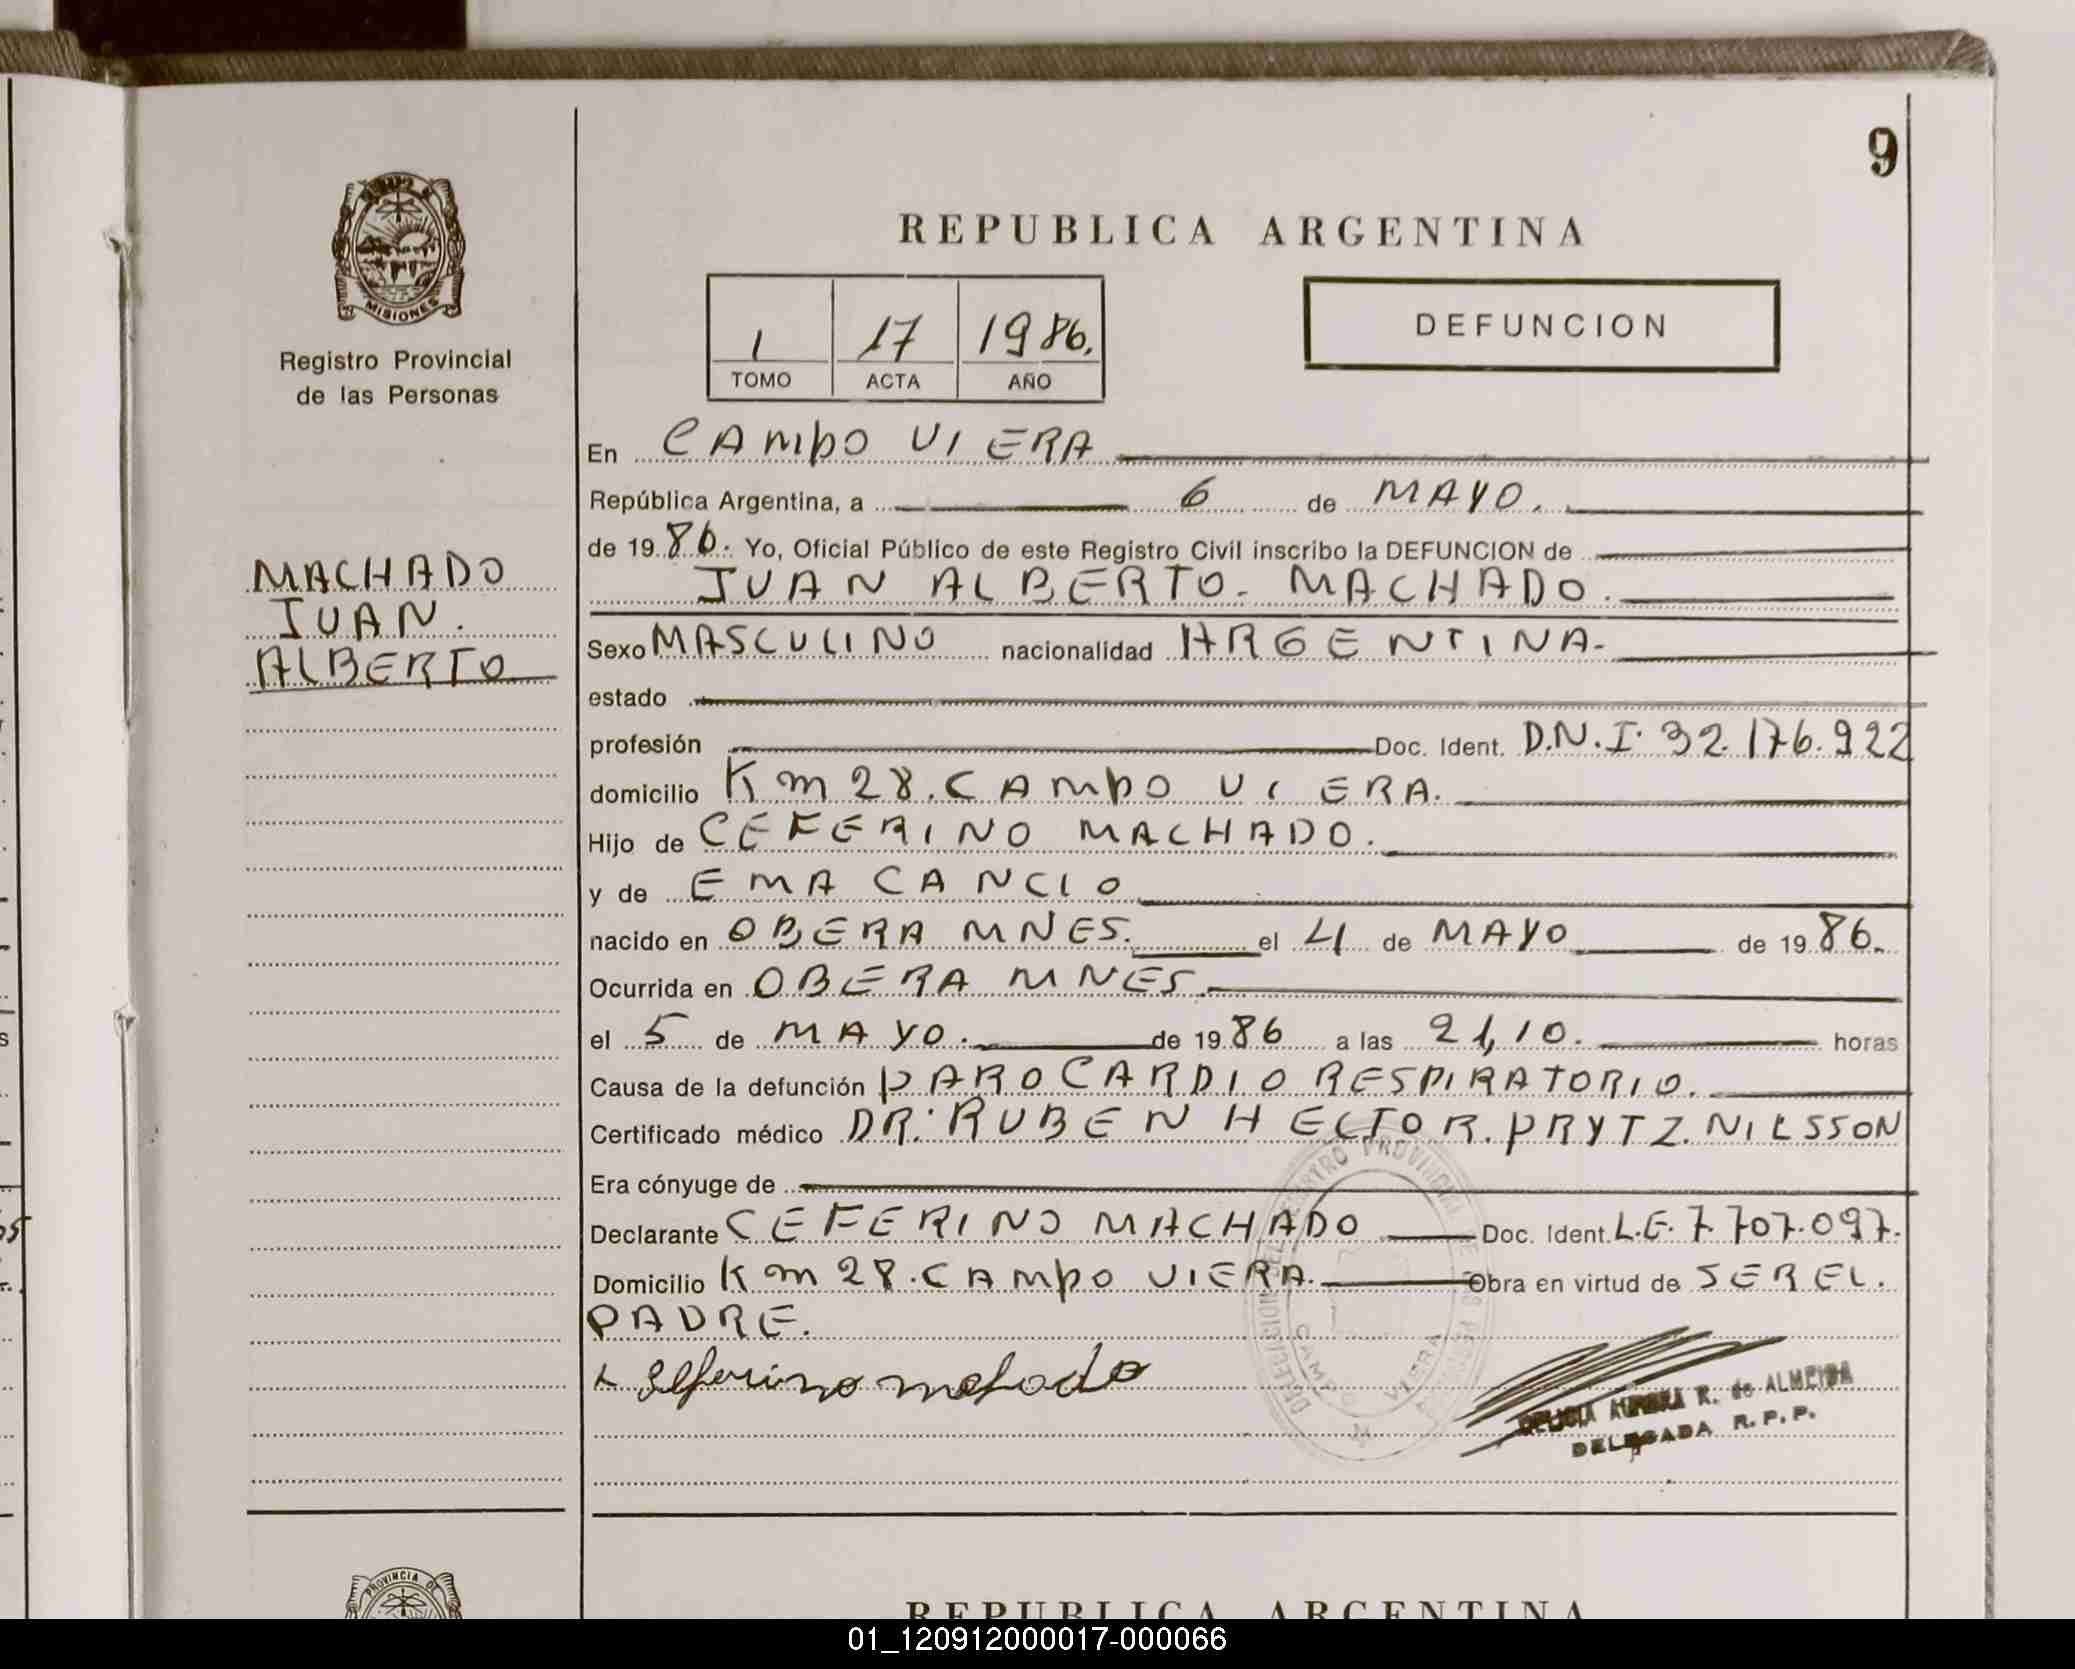 9
MISIONES
Registro Provincial
de las Personas
MACHADO
JUAN.
ALBERTO
REPUBLICA ARGENTINA
1 17 1986.
TOMO ACTA AÑO
DEFUNCION
En CAMPO VIERA
República Argentina, a 6 de MAYO.
de 1986. Yo, Oficial Público de este Registro Civil inscribo la DEFUNCION de
JUAN ALBERTO. MACHADO.
Sexo MASCULINO nacionalidad ARGENTINA.
estado
profesión Doc. Ident. D.N.I. 32.176.922
domicilio Km 28. CAMPO VIERA.
Hijo de CEFERINO MACHADO.
y de EMA CANCIO
nacido en OBERA MNES. el 4 de MAYO de 1986.
Ocurrida en OBERA MNES.
el 5 de MAYO. de 1986 a las 21,10. horas
Causa de la defunción PARO CARDIO RESPIRATORIO.
Certificado médico DR. RUBEN HECTOR. PRYTZ. NILSSON
Era cónyuge de
Declarante CEFERINO MACHADO Doc. Ident. L.E. 7.707.097.
Domicilio Km 28. CAMPO VIERA. Obra en virtud de SER EL.
PADRE.
DELEGACION DEL REGISTRO PROVINCIAL DE LAS PERSONAS
CAMPO VIERA
R. de ALMEIDA
DELEGADA R.P.P.
PROVINCIA DE
REPUBLICA ARGENTINA
01_120912000017-000066